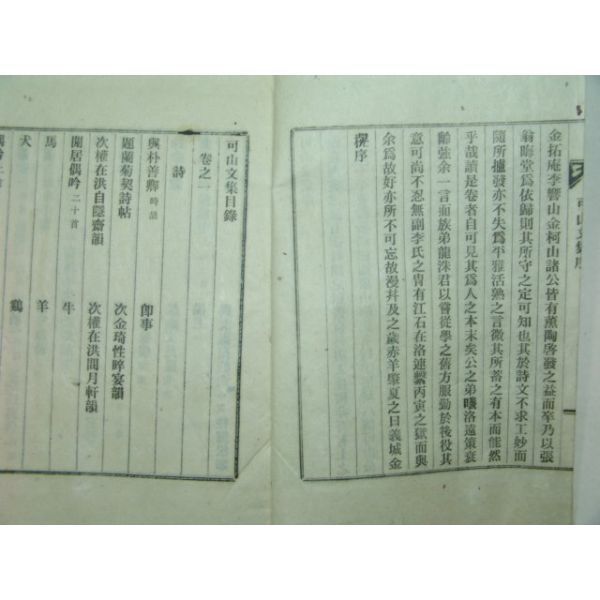 可山文集序
金拓庵李響山金柯山諸公皆有薰陶啓發之益而卒乃以張
翁晦堂爲依歸則其所守之定可知也其於詩文不求工妙而
隨所攄發亦不失爲平雅活熟之言微其所蓄之有本而能然
乎哉讀是卷者自可見其爲人之本末矣公之弟 洛遠策衰
齡強余一言而族弟龍洙君以嘗從學之舊方服勤於後役其
意可尚不忍無副李氏之胄有江石在洛連繫丙寅之獄而與
余爲故好亦所不可忘故漫幷及之歲赤羊肇夏之日義城金
榥序
可山文集目錄
卷之一
詩
與朴善卿 時語
卽事
題蘭菊契詩帖
次金琦性晬宴韻
次權在洪自隱齋韻
次權在洪閒月軒韻
閒居偶吟 二十首
牛
馬
羊
犬
鷄